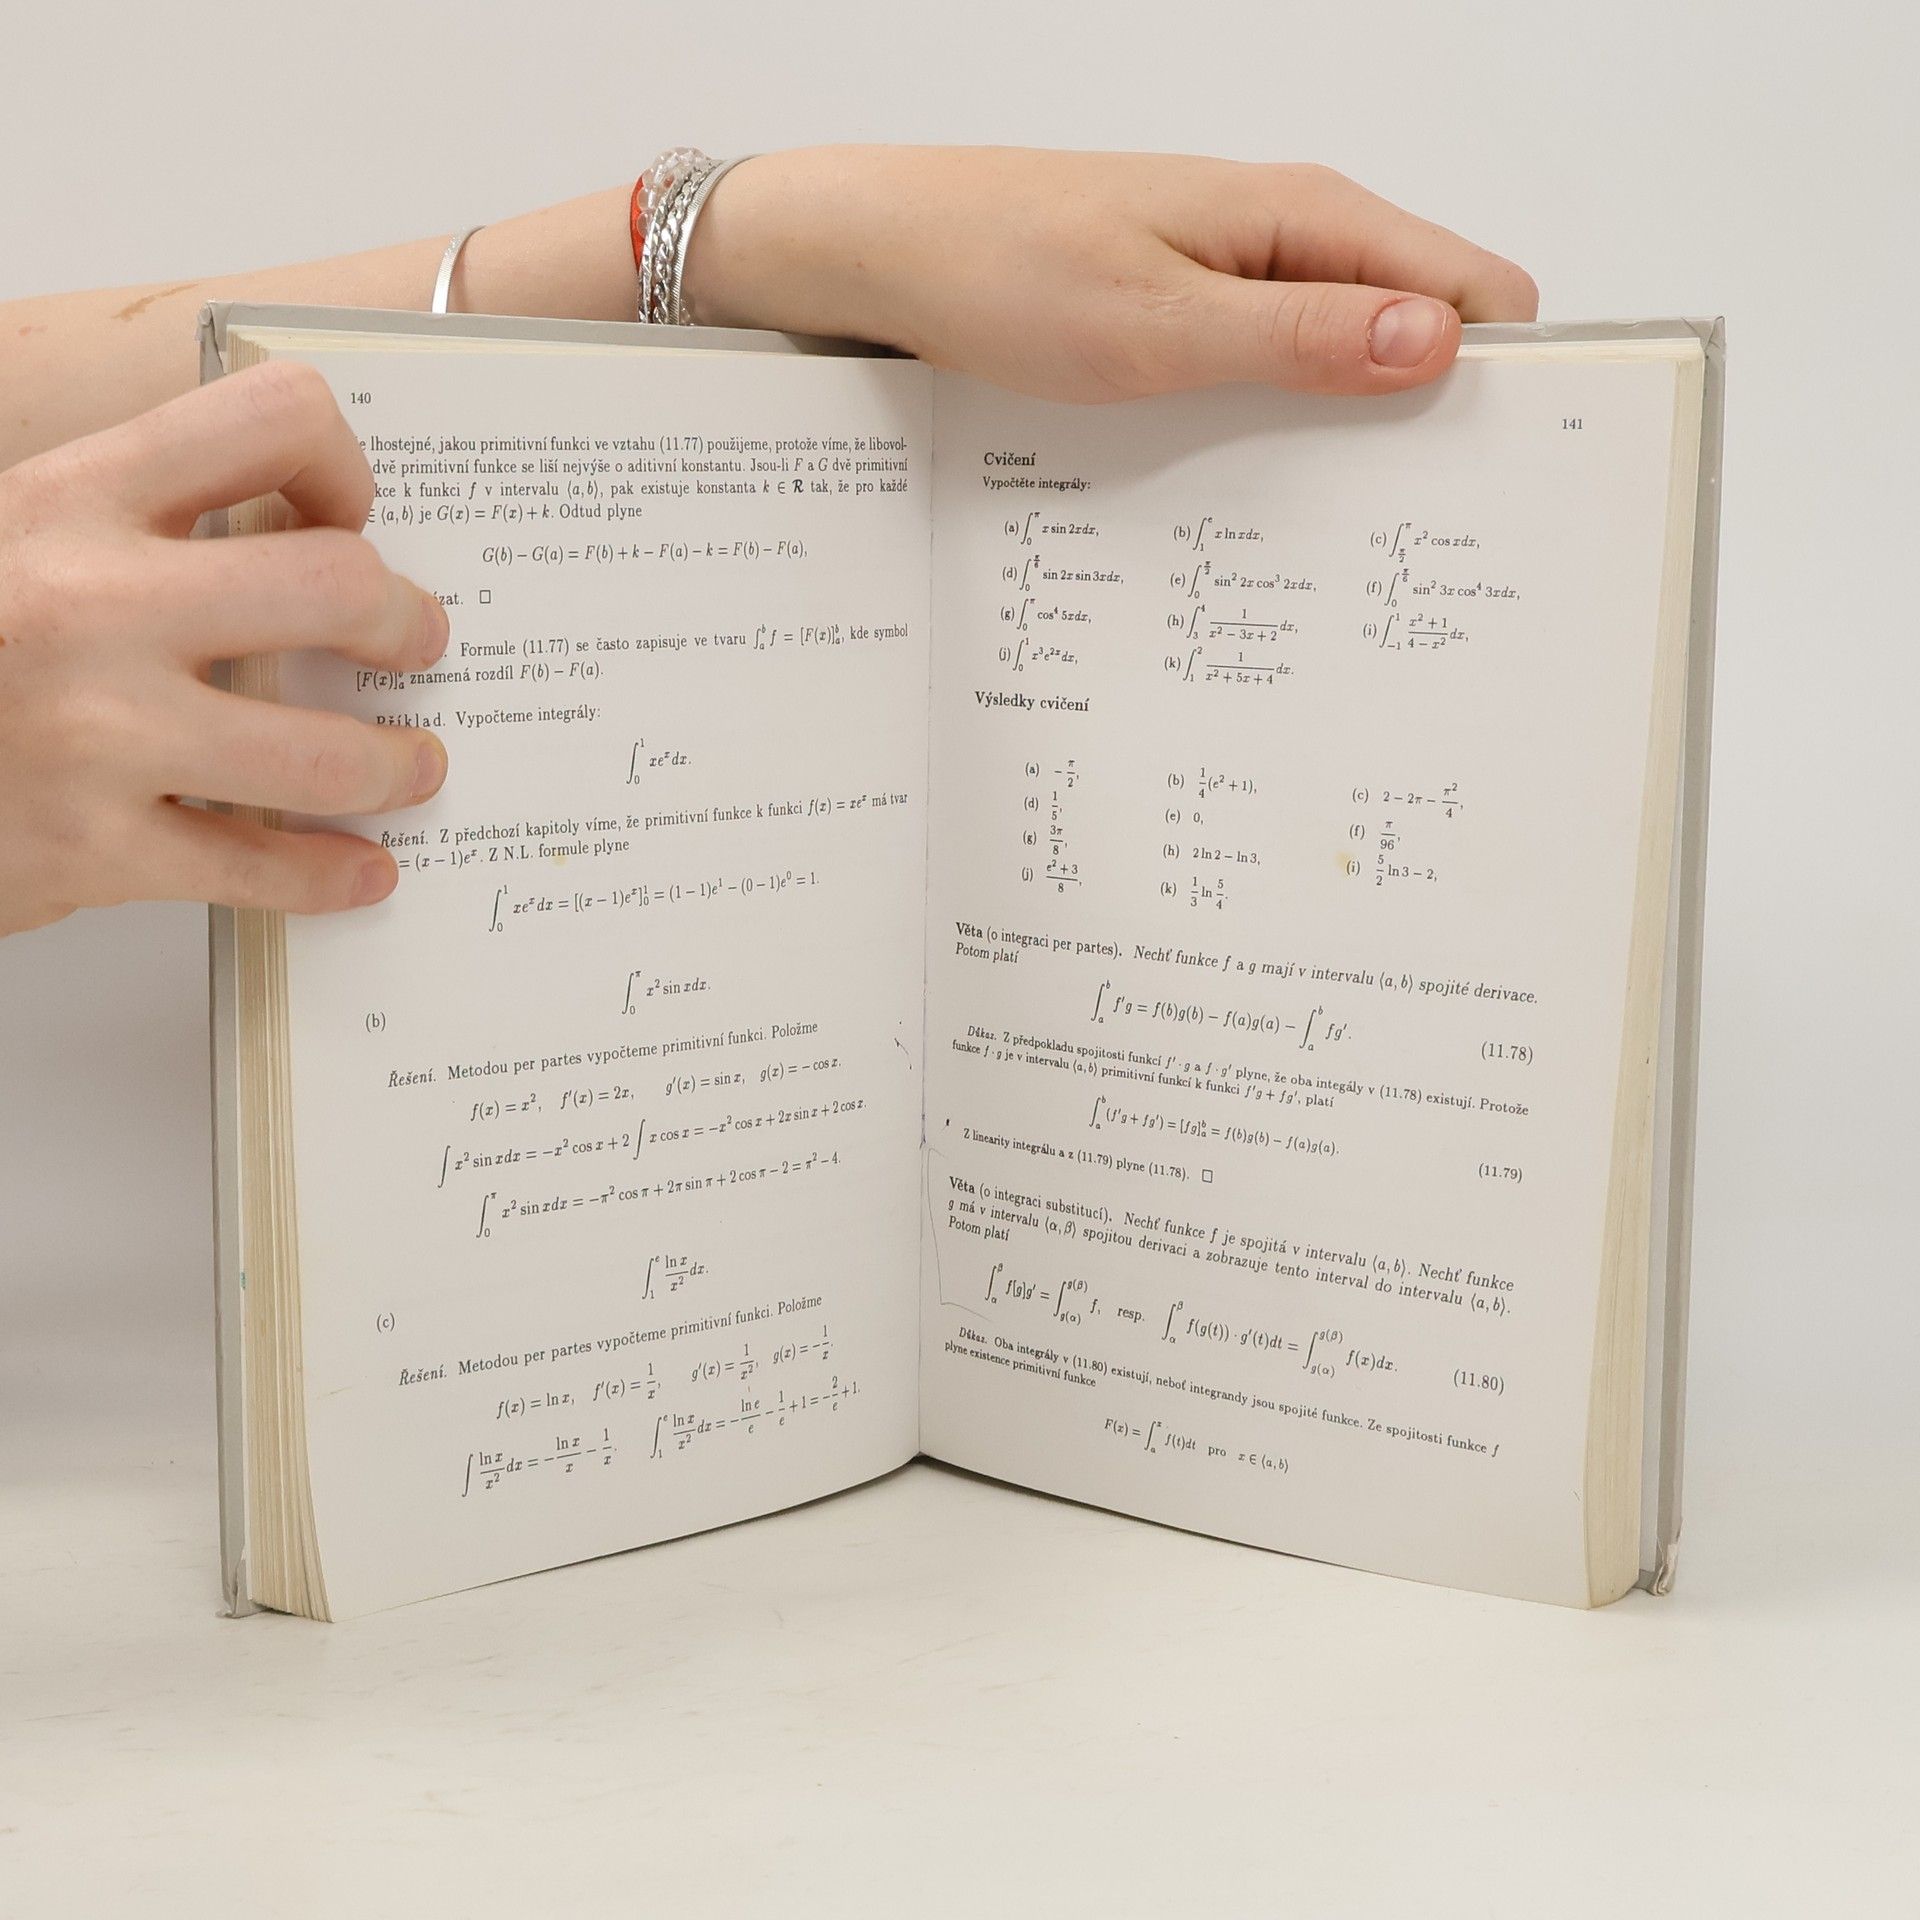 140
lhostejné, jakou primitivní funkci ve vztahu (11.77) použijeme, protože víme, že libovol-
dvě primitivní funkce se liší nejvýše o aditivní konstantu. Jsou-li F a G dvě primitivní
kce k funkci f v intervalu ⟨a, b⟩, pak existuje konstanta k ∈ R tak, že pro každé
∈ ⟨a, b⟩ je G(x) = F(x) + k. Odtud plyne
G(b) − G(a) = F(b) + k − F(a) − k = F(b) − F(a),
zat. □
Formule (11.77) se často zapisuje ve tvaru ∫_a^b f = [F(x)]_a^b, kde symbol
[F(x)]_a^b znamená rozdíl F(b) − F(a).
Příklad. Vypočteme integrály:
∫_0^1 xe^x dx.
Řešení. Z předchozí kapitoly víme, že primitivní funkce k funkci f(x) = xe^x má tvar
= (x − 1)e^x. Z N.L. formule plyne
∫_0^1 xe^x dx = [(x − 1)e^x]_0^1 = (1 − 1)e^1 − (0 − 1)e^0 = 1.
(b) ∫_0^π x^2 sin xdx.
Řešení. Metodou per partes vypočteme primitivní funkci. Položme
f(x) = x^2, f′(x) = 2x, g′(x) = sin x, g(x) = − cos x.
∫ x^2 sin xdx = −x^2 cos x + 2 ∫ x cos x = −x^2 cos x + 2x sin x + 2 cos x.
∫_0^π x^2 sin xdx = −π^2 cos π + 2π sin π + 2 cos π − 2 = π^2 − 4.
(c) ∫_1^e ln x/x^2 dx.
Řešení. Metodou per partes vypočteme primitivní funkci. Položme
f(x) = ln x, f′(x) = 1/x, g′(x) = 1/x^2, g(x) = −1/x.
∫ ln x/x^2 dx = −ln x/x − 1/x. ∫_1^e ln x/x^2 dx = −ln e/e − 1/e + 1 = −2/e + 1.
141
Cvičení
Vypočtěte integrály:
(a) ∫_0^π x sin 2xdx, (b) ∫_1^e x ln xdx, (c) ∫_{π/2}^π x^2 cos xdx,
(d) ∫_0^{π/6} sin 2x sin 3xdx, (e) ∫_0^{π/2} sin^2 2x cos^3 2xdx, (f) ∫_0^{π/6} sin^2 3x cos^4 3xdx,
(g) ∫_0^π cos^4 5xdx, (h) ∫_3^4 1/(x^2 − 3x + 2) dx, (i) ∫_{−1}^1 (x^2 + 1)/(4 − x^2) dx,
(j) ∫_0^1 x^3 e^{2x} dx, (k) ∫_1^2 1/(x^2 + 5x + 4) dx.
Výsledky cvičení
(a) −π/2, (b) 1/4(e^2 + 1), (c) 2 − 2π − π^2/4,
(d) 1/5, (e) 0, (f) π/96,
(g) 3π/8, (h) 2 ln 2 − ln 3, (i) 5/2 ln 3 − 2,
(j) (e^2 + 3)/8, (k) 1/3 ln 5/4.
Věta (o integraci per partes). Nechť funkce f a g mají v intervalu ⟨a, b⟩ spojité derivace.
Potom platí
∫_a^b f′g = f(b)g(b) − f(a)g(a) − ∫_a^b fg′. (11.78)
Důkaz. Z předpokladu spojitosti funkcí f′ · g a f · g′ plyne, že oba integály v (11.78) existují. Protože
funkce f · g je v intervalu ⟨a, b⟩ primitivní funkcí k funkci f′g + fg′, platí
∫_a^b (f′g + fg′) = [fg]_a^b = f(b)g(b) − f(a)g(a). (11.79)
Z linearity integrálu a z (11.79) plyne (11.78). □
Věta (o integraci substitucí). Nechť funkce f je spojitá v intervalu ⟨a, b⟩. Nechť funkce
g má v intervalu ⟨α, β⟩ spojitou derivaci a zobrazuje tento interval do intervalu ⟨a, b⟩.
Potom platí
∫_α^β f[g]g′ = ∫_{g(α)}^{g(β)} f, resp. ∫_α^β f(g(t)) · g′(t)dt = ∫_{g(α)}^{g(β)} f(x)dx. (11.80)
Důkaz. Oba integrály v (11.80) existují, neboť integrandy jsou spojité funkce. Ze spojitosti funkce f
plyne existence primitivní funkce
F(x) = ∫_a^x f(t)dt pro x ∈ ⟨a, b⟩